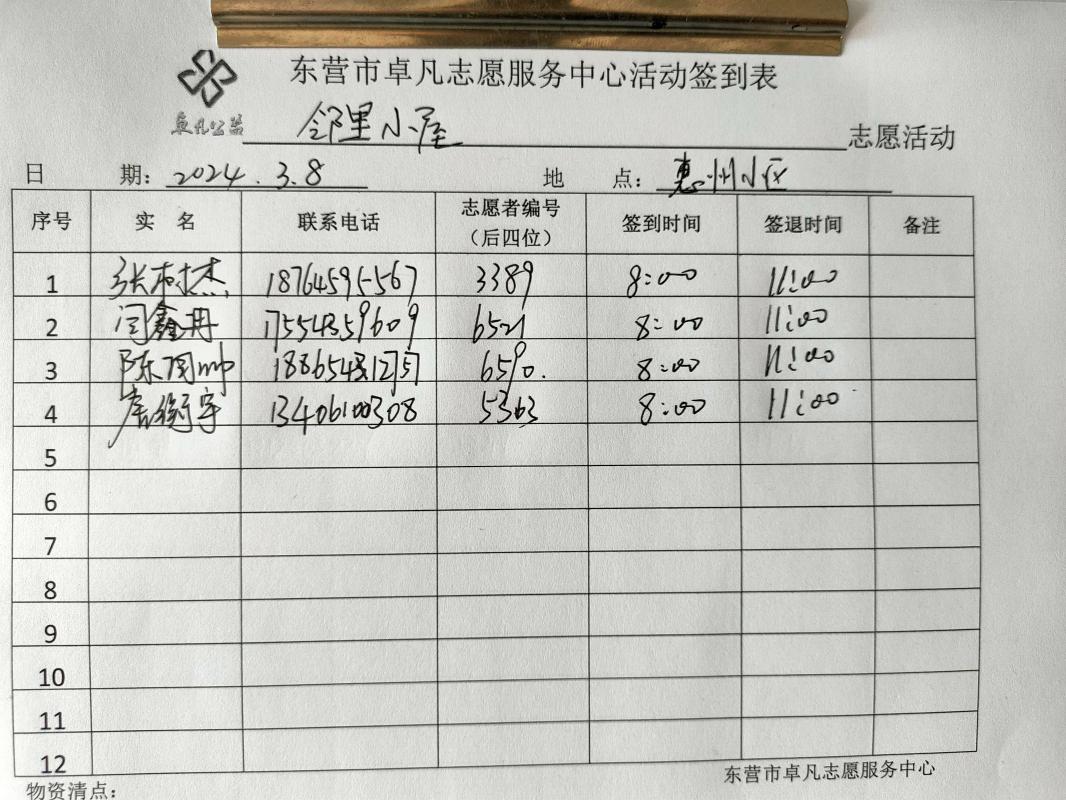 东营市卓凡志愿服务中心活动签到表
卓凡公益 邻里小屋 志愿活动
日 期: 2024.3.8 地 点: 惠州小区
序号 实 名 联系电话 志愿者编号(后四位) 签到时间 签退时间 备注
1 张树杰 18764595567 3389 8:00 11:00
2 闫鑫丹 17554859609 6521 8:00 11:00
3 6590. 8:00 11:00
4 13406100308 5363 8:00 11:00
5
6
7
8
9
10
11
12
东营市卓凡志愿服务中心
物资清点: